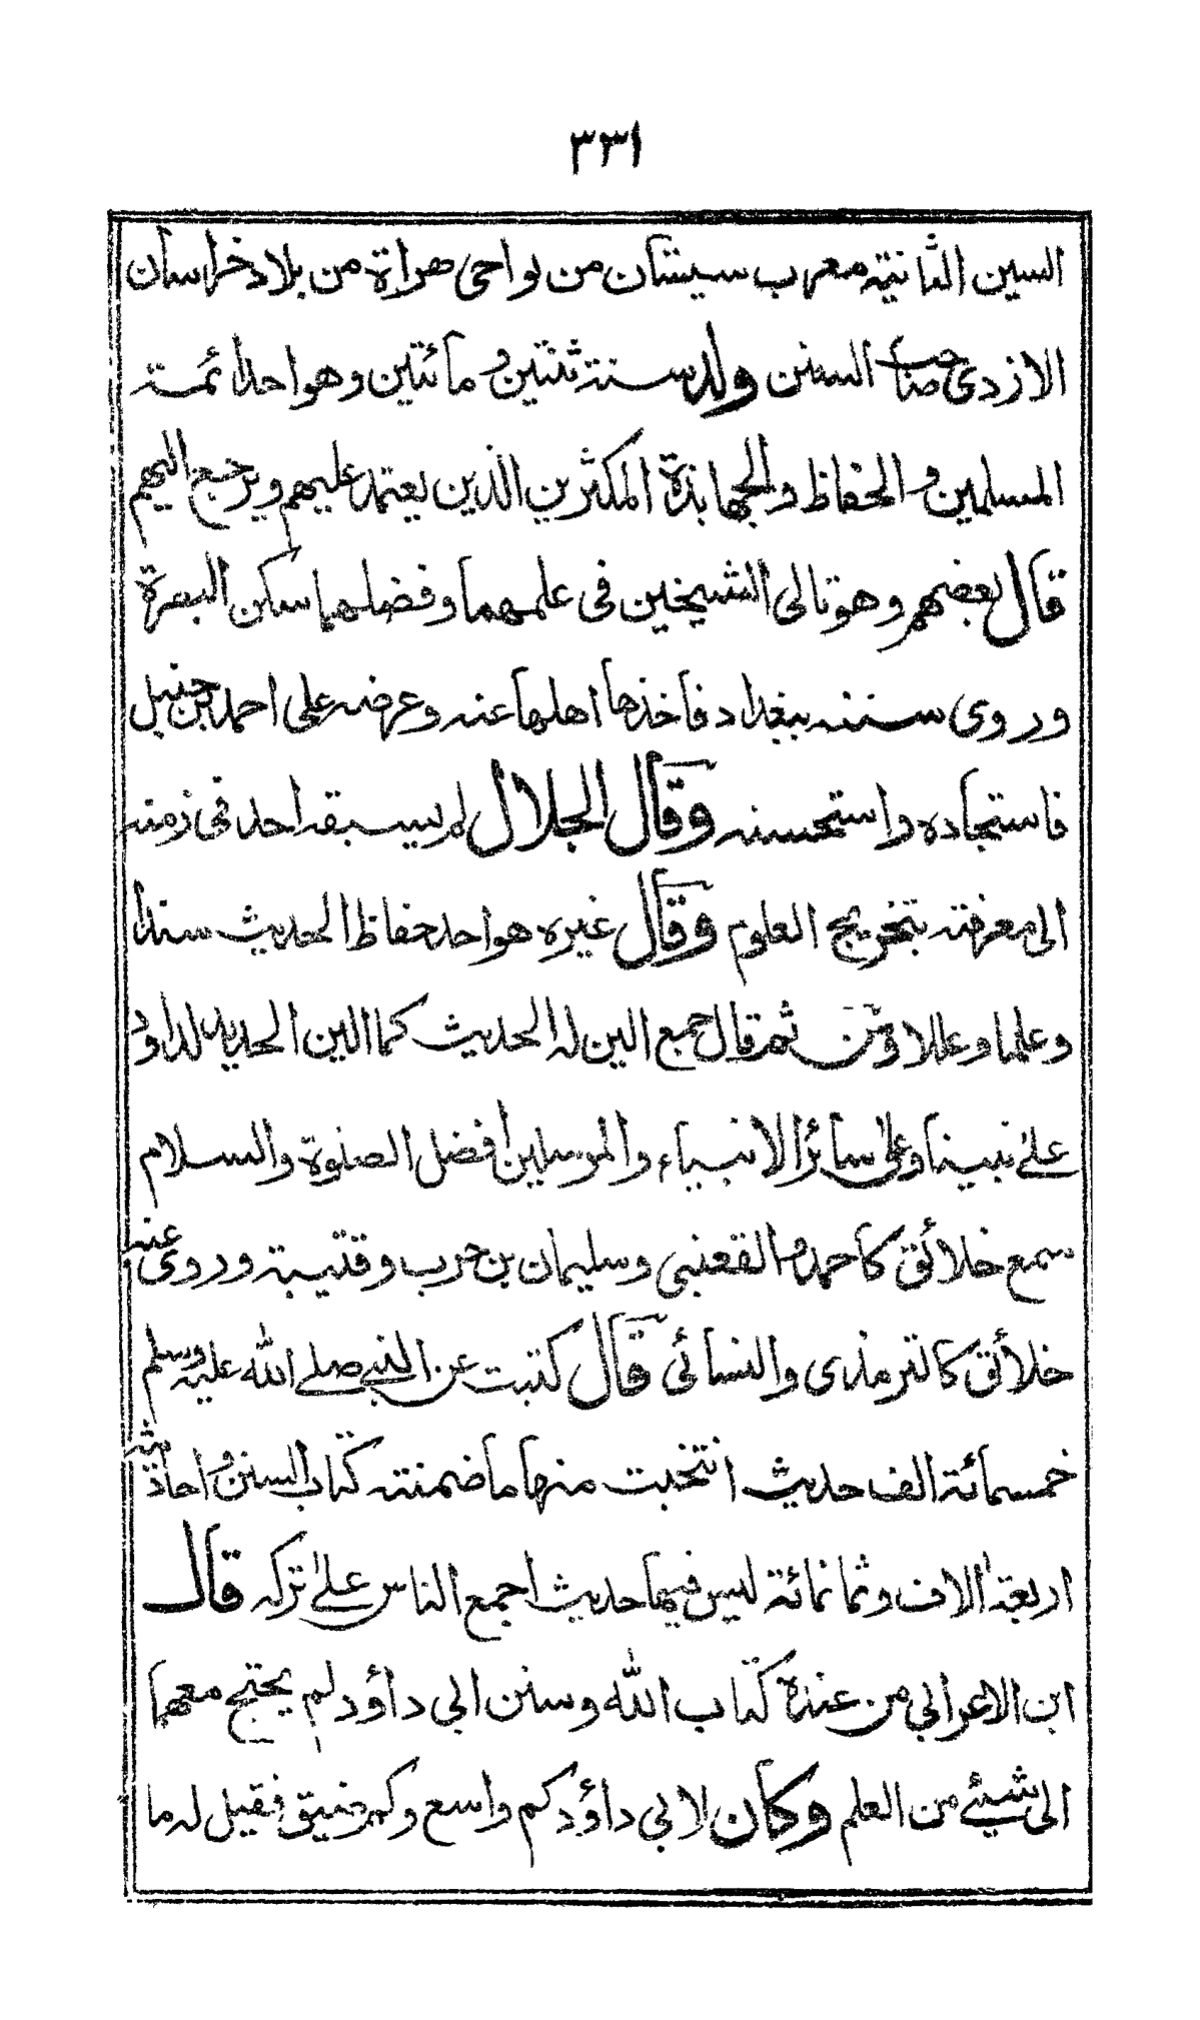 ٣٣١
السين الثانية معرب سيستان من نواحى هراة من بلاد خراسان
الازدى صاحب السنن ولد سنة ثنتين و مائتين وهو احد ائمة
المسلمين و الحفاظ و الجهابذة المكثرين الذين يعتمد عليهم ويرجع اليهم
قال بعضهم وهو تالى الشيخين فى علمهما وفضلهما سكن البصرة
وروى سننه ببغداد فاخذها اهلها عنه وعرضه على احمد بن حنبل
فاستجاده واستحسنه وقال الجلال لم يسبقه احد فى زمنه
الى معرفته بتخريج العلوم وقال غيره هو احد حفاظ الحديث سندا
وعلما وعللا ومن ثم قال جمع الين له الحديث كما الين الحديد لداود
على نبينا وعلى سائر الانبياء والمرسلين افضل الصلوة والسلام
سمع خلائق كاحمد و القعنبى وسليمان بن حرب وقتيبة وروى عنه
خلائق كالترمذى والنسائى قال كتبت عن النبى صلى الله عليه وسلم
خمسمائة الف حديث انتخبت منها ما ضمنته كتاب السنن و احاديثه
اربعة الاف وثمانمائة ليس فيها حديث اجمع الناس على تركه قال
ابن الاعرابى من عنده كتاب الله وسنن ابى داؤد لم يحتج معهما
الى شيئ من العلم وكان لابى داؤد كم واسع وكم ضيق فقيل له ما